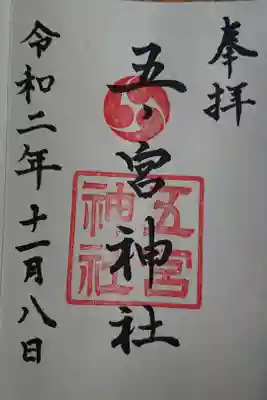 奉拝
五ノ宮神社
五宮
神社
令和二年十一月八日